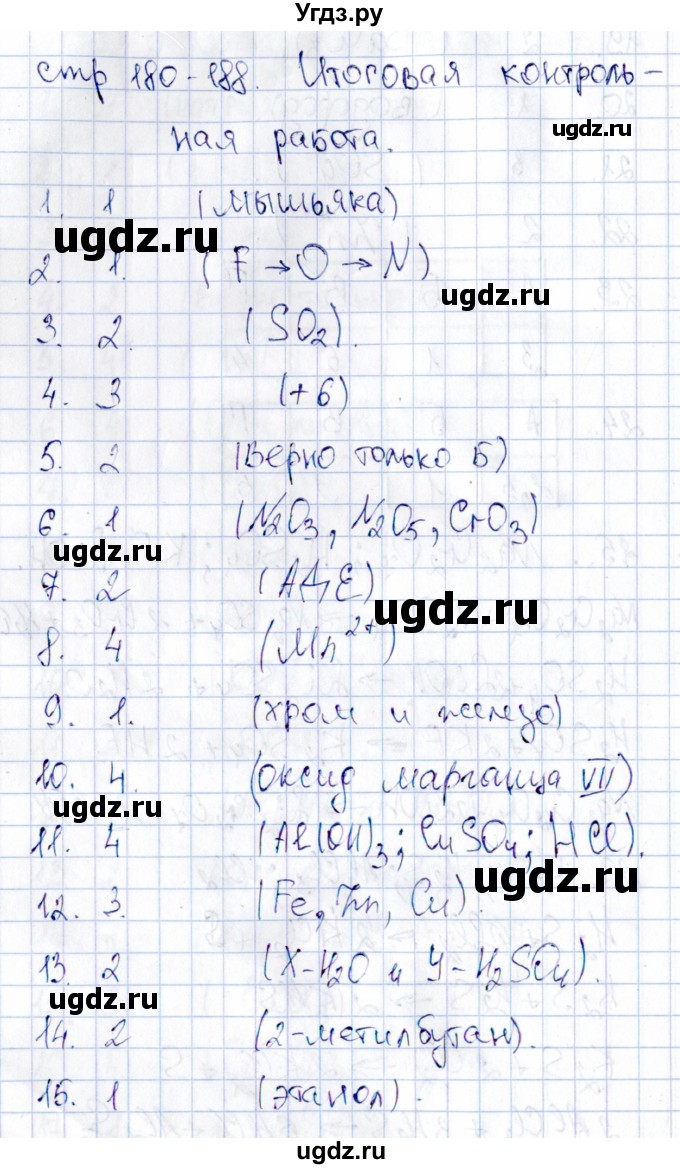 Угдз.ру
стр 180-188. Итоговая контроль-
ная работа.
ugdz.ru
1. 1 (мышьяка)
ugdz.ru
2. 1. (F → O → N)
ugdz.ru
3. 2. (SO2).
4. 3 (+6)
5. 2 (верно только Б)
6. 1 (N2O3, N2O5, CrO3)
ugdz.ru
7. 2 (АДЕ)
ugdz.ru
8. 4 (Mn2+)
9. 1. (хром и железо)
10. 4. (оксид марганца VII)
ugdz.ru
11. 4 (Al(OH)3; CuSO4; HCl).
ugdz.ru
12. 3. (Fe, Zn, Cu).
13. 2 (X-H2O и У-H2SO4).
ugdz.ru
14. 2 (2-метилбутан).
15. 1 (этанол).
ugdz.ru